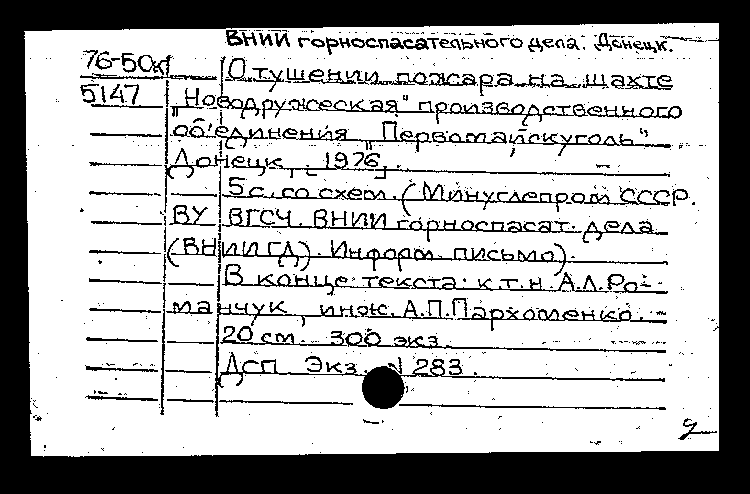 ВНИИ горноспасательного дела. Донецк.
76-50к
О тушении пожара на шахте
5147 „Новодружеская" производственного
объединения „Первомайскуголь"
Донецк, [1976].
5 с. со схем. (Минуглепром СССР.
ВУ ВГСЧ. ВНИИ горноспасат. дела
(ВНИИГД). Информ. письмо).
В конце текста: к.т.н. А.Л. Ро-
манчук, инж. А.П. Пархоменко.
20 см. 300 экз.
Дсп. Экз. N 283.